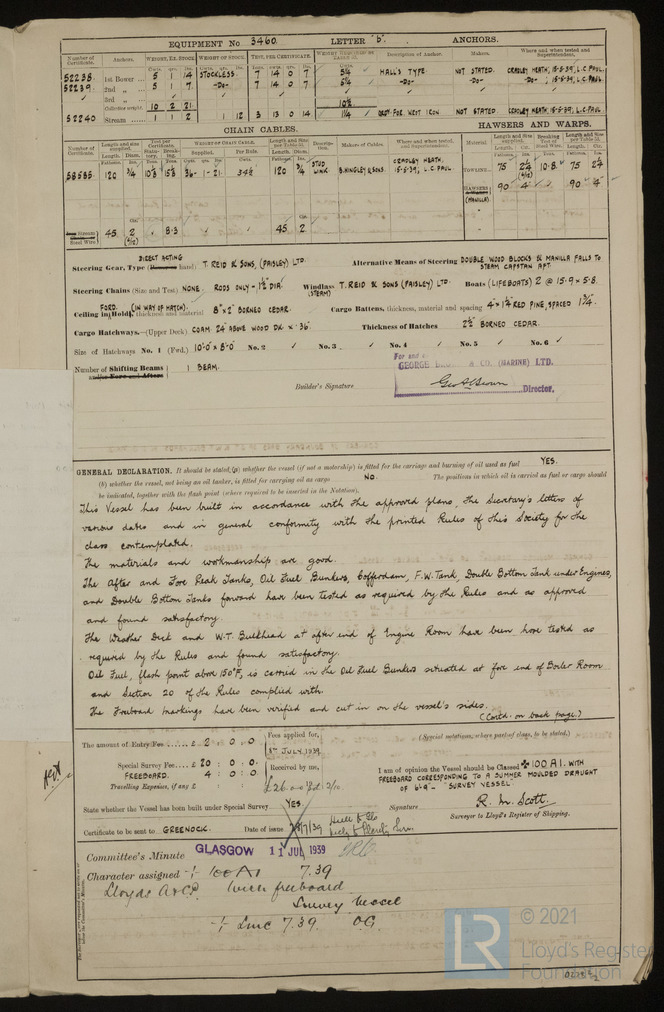 EQUIPMENT No 3460. LETTER "b". ANCHORS.
Number of Certificate. Anchors. WEIGHT, EX. STOCK. WEIGHT OF STOCK. TEST, PER CERTIFICATE. Description of Anchor. Makers. Where and when tested and Superintendent.
52238. 1st Bower 5 1 14 STOCKLESS. 7 14 0 7 5¼ ✓ HALL'S TYPE. NOT STATED. CRADLEY HEATH, 15-5-39, L.C. PAUL.
52239. 2nd „ 5 1 7 -DO- 7 14 0 7 5¼ ✓ -DO- -DO- -DO- 15-5-39, L.C. PAUL.
3rd „
Collective weight. 10 2 21 10½
52240 Stream 1 1 2 1 12 3 13 0 14 1¼ ✓ NOT STATED CRADLEY HEATH, 15-5-39, L.C. PAUL
CHAIN CABLES. HAWSERS AND WARPS.
Number of Certificate. Length and size supplied. Test per Certificate. WEIGHT OF CHAIN CABLE. Length and Size per Table 53. Description. Makers of Cables. Where and when tested, and Superintendent. Material Length and Size supplied. Breaking Test of Steel Wire. Length and Size per Table 53.
58585. 120 ¾ 36-1-21 120 ¾ STUD LINK B. HINGLEY & SONS. CRADLEY HEATH. 15-5-39, L.C. PAUL. TOWLINE 75 10·8 ✓ 75 2¼
HAWSERS (MANILLA) 90 4 90 4
Stream Steel Wire 45 2 8·3 45 2
DIRECT ACTING
Steering Gear, Type T. REID & SONS, (PAISLEY) LTD. Alternative Means of Steering DOUBLE WOOD BLOCKS & MANILLA FALLS TO STEAM CAPSTAN AFT.
Steering Chains (Size and Test) NONE RODS ONLY - 1⅛" DIA Windlass (STEAM) T. REID & SONS (PAISLEY) LTD. Boats (LIFEBOATS) 2 @ 15·9 × 5·8.
FORD. (IN WAY OF HATCH).
Ceiling in Hold, thickness and material 8" × 2" BORNEO CEDAR. Cargo Battens, thickness, material and spacing 4" × 1¼" RED PINE, SPACED
Cargo Hatchways.—(Upper Deck) COAM. 24" ABOVE WOOD DK × ·36" Thickness of Hatches 2½" BORNEO CEDAR.
Size of Hatchways No. 1 (Fwd.) 10'-0" × 8'-0" No. 2 ✓ No. 3 ✓ No. 4 ✓ No. 5 ✓ No. 6 ✓
Number of Shifting Beams and/or Fore and Afters 1 BEAM.
For and
GEORGE & CO. (MARINE) LTD.
Builder's Signature Geo. Brown Director.
GENERAL DECLARATION. It should be stated, (a) whether the vessel (if not a motorship) is fitted for the carriage and burning of oil used as fuel YES.
(b) whether the vessel, not being an oil tanker, is fitted for carrying oil as cargo NO. The positions in which oil is carried as fuel or cargo should
be indicated, together with the flash point (where required to be inserted in the Notation).
This Vessel has been built in accordance with the approved plans, the Secretary's letters of
various dates and in general conformity with the printed Rules of this Society for the
class contemplated.
The materials and workmanship are good.
The After and Fore Peak Tanks, Oil Fuel Bunkers, Cofferdam, F.W. Tank, Double Bottom Tank under Engines,
and Double Bottom Tanks forward have been tested as required by the Rules and as approved
and found satisfactory.
The Weather Deck and W.T. Bulkhead at after end of Engine Room have been hose tested as
required by the Rules and found satisfactory.
Oil Fuel, flash point above 150°F, is carried in the Oil Fuel Bunkers situated at fore end of Boiler Room
and Section 20 of the Rules complied with.
The Freeboard markings have been verified and cut in on the vessel's sides.
(Contd. on back page.)
The amount of Entry Fee £ 2 : 0 : 0 Fees applied for, JULY 1939 (Special notations, where part of class, to be stated.)
Special Survey Fee £ 20 : 0 : 0 Received by me,
FREEBOARD. 4 : 0 : 0
Travelling Expenses, if any £ : : £26.0.0
I am of opinion the Vessel should be Classed ✠ 100 A1. WITH
FREEBOARD CORRESPONDING TO A SUMMER MOULDED DRAUGHT
OF 6'-9" - "SURVEY VESSEL"
State whether the Vessel has been built under Special Survey YES.
Signature R. M. Scott.
Surveyor to Lloyd's Register of Shipping.
Certificate to be sent to GREENOCK. Date of issue 7/39
Committee's Minute GLASGOW 11 JUL 1939
Character assigned + 100 A1 7.39
Lloyds A & CP. with freeboard
Survey Vessel
+ LMC 7.39. O.G.
© 2021
LR Lloyd's Register
Foundation